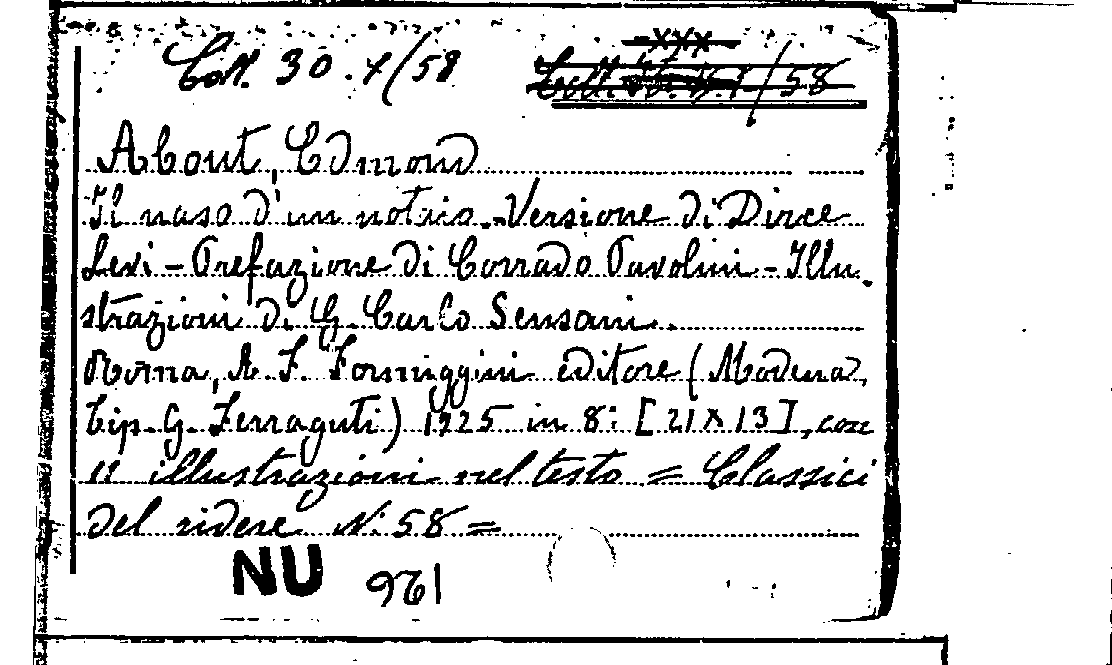 Coll. 30.X/58
-XXX
Coll. /58
About, Edmond
Il naso d'un notaio. Versione di Dirce
Levi - Prefazione di Corrado Pavolini - Illu.
strazioni di G. Carlo Sensani.
Roma, A. F. Formiggini editore (Modena,
tip. G. Ferraguti) 1925 in 8: [21 X 13], con
11 illustrazioni nel testo = Classici
del ridere N. 58 =
NU 961